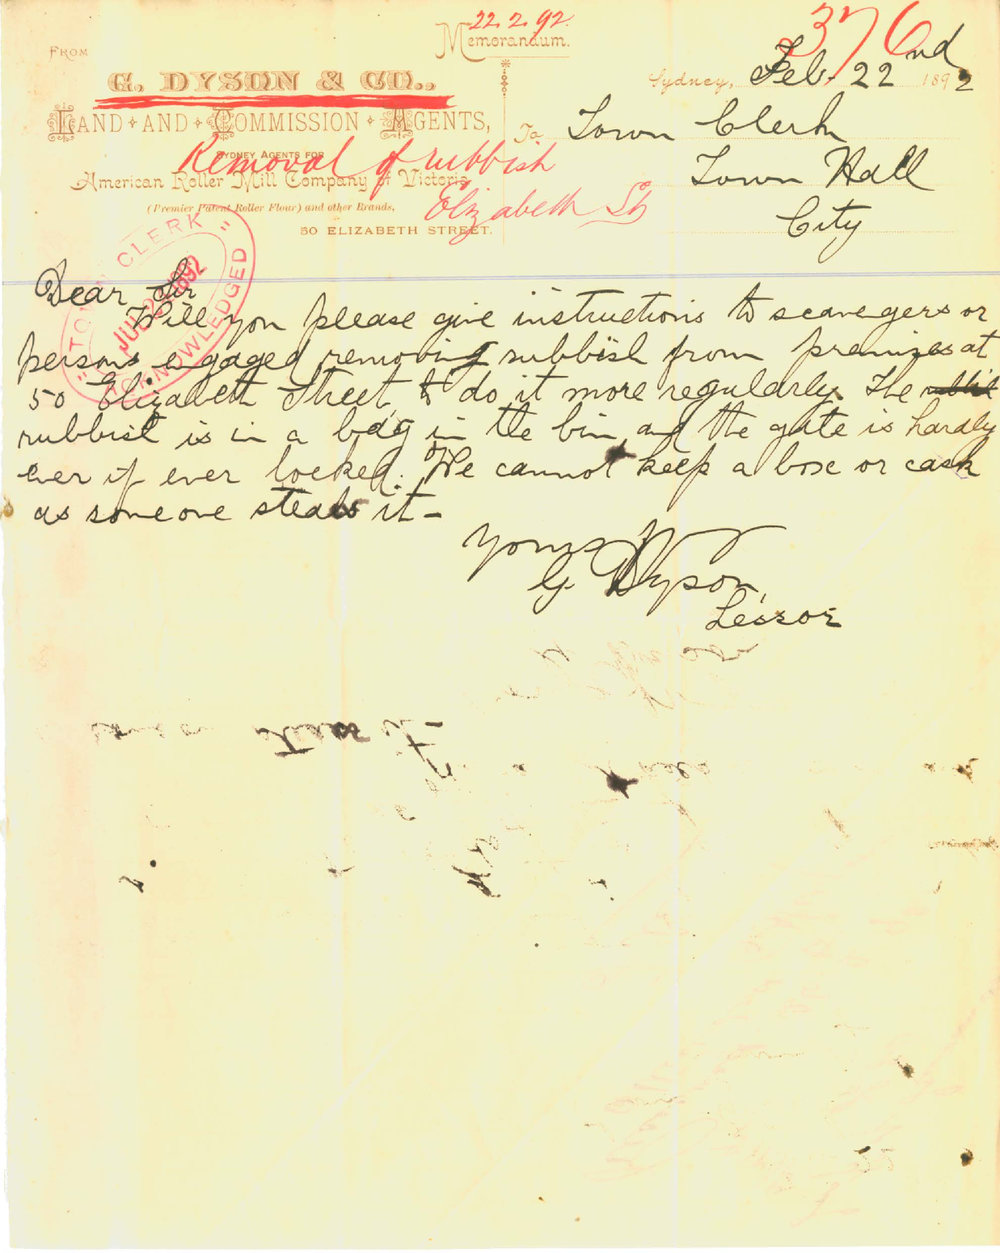 22.2.92.
376
Memorandum.
FROM
G. DYSON & CO.,
Sydney, Feb. 22nd 1892
LAND AND COMMISSION AGENTS,
To Town Clerk
SYDNEY AGENTS FOR
Removal of rubbish
American Roller Mill Company of Victoria
Town Hall
(Premier Patent Roller Flour) and other Brands,
Elizabeth St
City
50 ELIZABETH STREET.
"TOWN CLERK"
JUL 1892
ACKNOWLEDGED
Dear Sir
Will you please give instructions to scavengers or
persons engaged removing rubbish from premises at
50 Elizabeth Street, to do it more regularly. The
rubbish is in a bag in the bin, and the gate is hardly
ever if ever locked. We cannot keep a box or cask
as someone steals it -
Yours
G Dyson,
Lessor